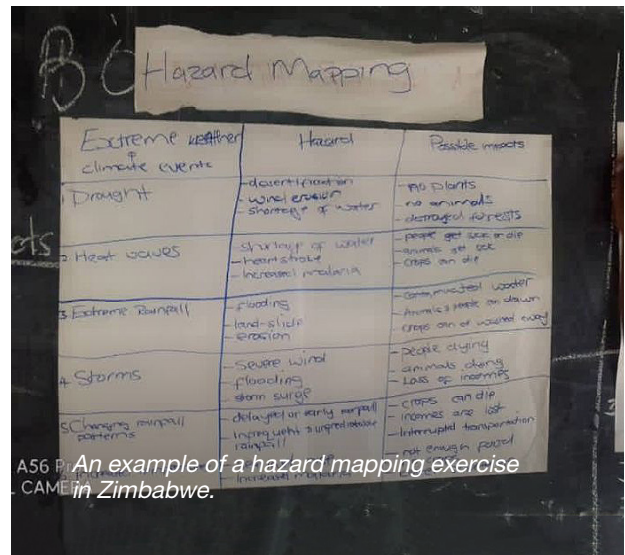 Hazard Mapping
Extreme weather
climate events
Hazard
Possible impacts
1 Drought
- desertification
- wind erosion
- shortage of water
- no plants
- no animals
- destroyed forests
2 Heat waves
- shortage of water
- heatstroke
- Increased malaria
- people get sick or die
- animals get sick
- crops can die
3 Extreme Rainfall
- flooding
- land-slide
- erosion
- contaminated water
- Animals people can drown
- crops can washed away
4 Storms
- Severe wind
- flooding
- storm surge
- people dying
- animals dying
- Loss of incomes
5 Changing rainfall
patterns
- delayed or early rainfall
- Infrequent & unpredictable
rainfall
- crops can die
- incomes are lost
- Interrupted transportation
- not enough
- Increased malaria
A56
CAMERA
An example of a hazard mapping exercise
in Zimbabwe.